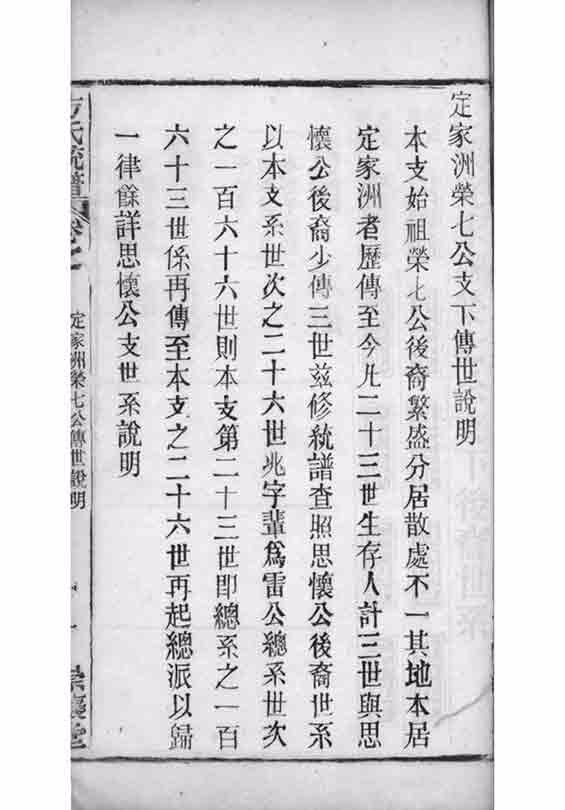 定家洲榮七公支下傳世說明
本支始祖榮七公後裔繁盛分居散處不一其地本居
定家洲者歷傳至今凡二十三世生存人計三世與思
懷公後裔少傳三世茲修統譜查照思懷公後裔世系
以本支系世次之二十六世兆字輩爲雷公總系世次
之一百六十六世則本支第二十三世即總系之一百
六十三世係再傳至本支之二十六世再起總派以歸
一律餘詳思懷公支世系說明
方氏統譜
定家洲榮七公傳世說明